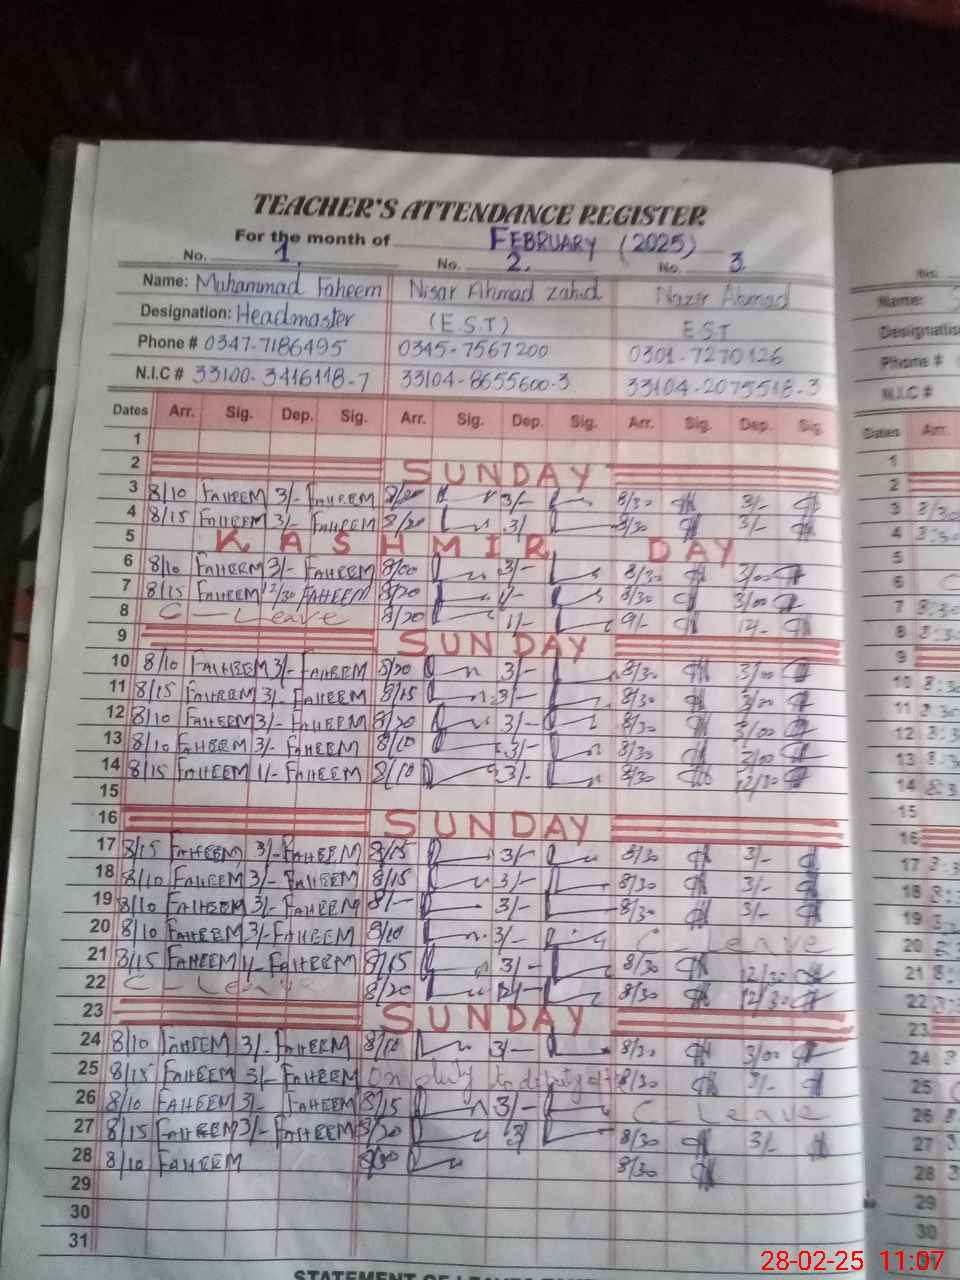 TEACHER'S ATTENDANCE REGISTER
For the month of FEBRUARY (2025)
No. 1. No. 2. No. 3.
Name: Muhammad Faheem Nisar Ahmad Zahid Nazir Ahmad
Designation: Headmaster (E.S.T) E.S.T
Phone # 0347-7186495 0345-7567200 0301-7270126
N.I.C # 33100-3416118-7 33104-8655600-3 33104-2075518-3
Dates Arr. Sig. Dep. Sig. Arr. Sig. Dep. Sig. Arr. Sig. Dep. Sig.
1
2 SUNDAY
3 8/10 FAHEEM 3/- FAHEEM 8/20 3/- 8/30 3/-
4 8/15 FAHEEM 3/- FAHEEM 8/20 3/- 8/30 3/-
5 KASHMIR DAY
6 8/10 FAHEEM 3/- FAHEEM 8/00 3/- 8/30 3/00
7 8/15 FAHEEM 12/30 FAHEEM 8/20 8/30 3/00
8 C - Leave 8/20 1/- 9/- 12/-
9 SUNDAY
10 8/10 FAHEEM 3/- FAHEEM 8/20 3/- 8/30 3/00
11 8/15 FAHEEM 3/- FAHEEM 8/15 3/- 8/30 3/00
12 8/10 FAHEEM 3/- FAHEEM 8/20 3/- 8/30 3/00
13 8/10 FAHEEM 3/- FAHEEM 8/10 3/- 8/30 3/00
14 8/15 FAHEEM 1/- FAHEEM 8/10 3/- 8/30 12/30
15
16 SUNDAY
17 8/15 FAHEEM 3/- FAHEEM 8/15 3/- 8/30 3/-
18 8/10 FAHEEM 3/- FAHEEM 8/15 3/- 8/30 3/-
19 8/10 FAHEEM 3/- FAHEEM 8/- 3/- 8/30 3/-
20 8/10 FAHEEM 3/- FAHEEM 8/10 3/- C - Leave
21 8/15 FAHEEM 1/- FAHEEM 8/15 3/- 8/30 12/30
22 C - Leave 8/20 12/- 8/30 12/30
23 SUNDAY
24 8/10 FAHEEM 3/- FAHEEM 8/10 3/- 8/30 3/00
25 8/15 FAHEEM 3/- FAHEEM On duty to deputy 8/30 3/-
26 8/10 FAHEEM 3/- FAHEEM 8/15 3/- C - Leave
27 8/15 FAHEEM 3/- FAHEEM 8/20 3/ 8/30 3/-
28 8/10 FAHEEM 8/30 8/30
29
30
31
28-02-25 11:07